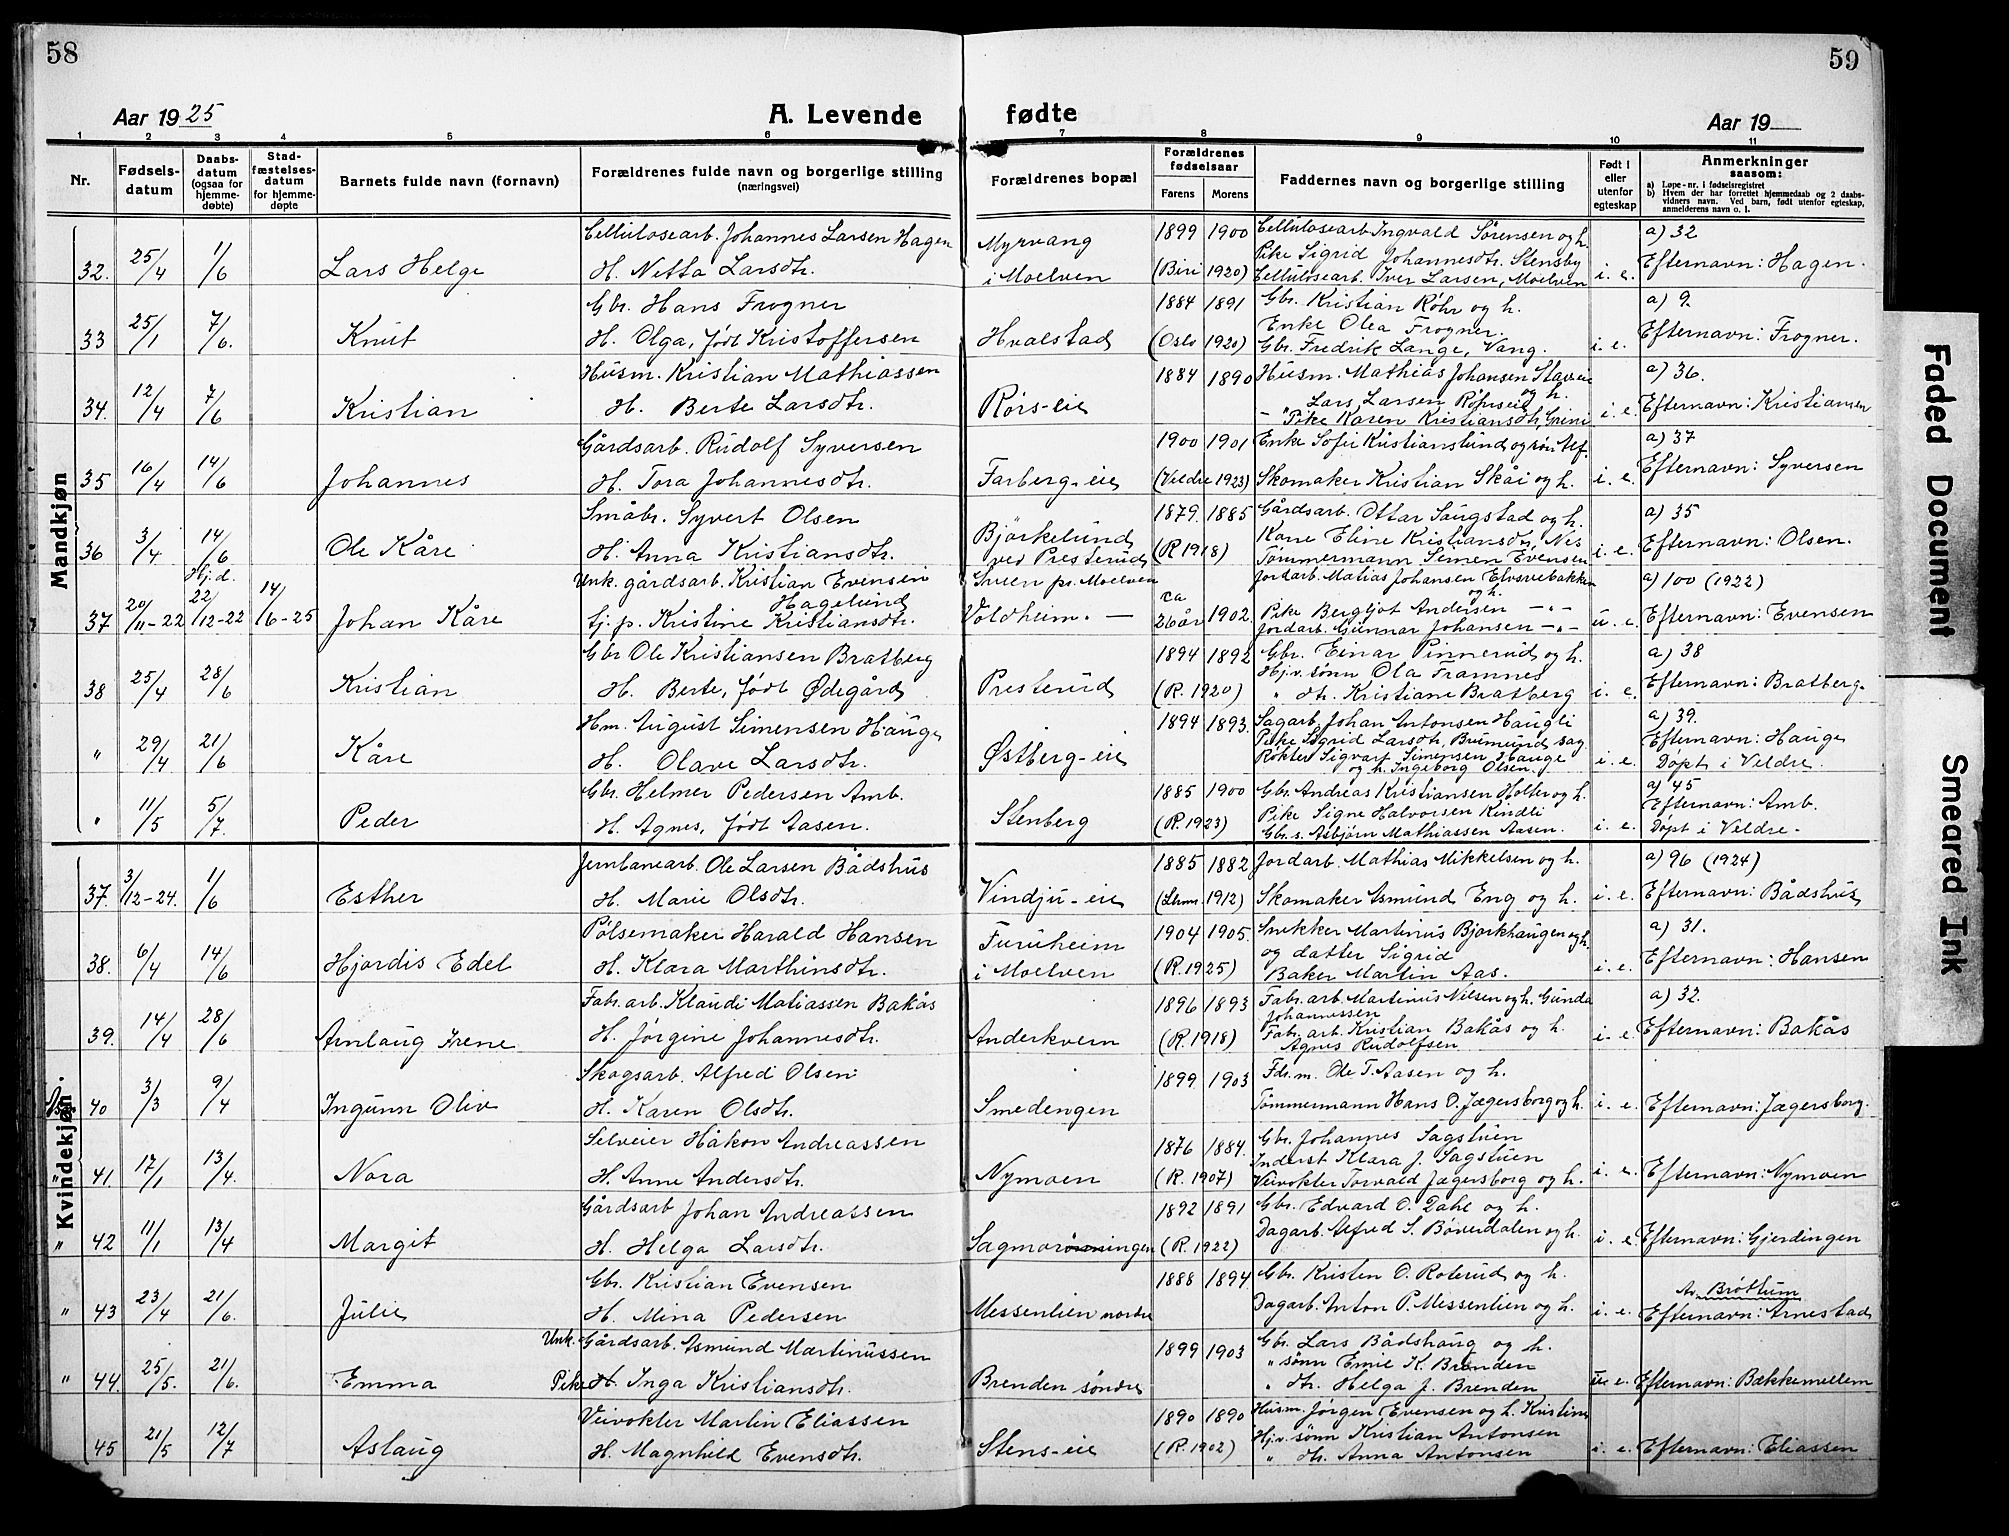 58
59
Aar 1925
A. Levende fødte
Aar 19
1 2 3 4 5 6 7 8 9 10 11
Nr.
Fødsels-
datum
Daabs-
datum
(ogsaa for
hjemme-
døbte)
Stad-
fæstelses-
datum
for hjemme-
døpte
Barnets fulde navn (fornavn)
Forældrenes fulde navn og borgerlige stilling
(næringsvei)
Forældrenes bopæl
Forældrenes
fødselsaar
Farens Morens
Faddernes navn og borgerlige stilling
Født i
eller
utenfor
egteskap
Anmerkninger
saasom:
a) Løpe-nr. i fødselsregistret
b) Hvem der har forrettet hjemmedaab og 2 daabs-
vidners navn. Ved barn, født utenfor egteskap,
anmelderens navn o. l.
Mandkjøn
Cellulosearb. Johannes Larsen Hagen Myrvang 1899 1900 Cellulosearb Ingvald Sörensen og h. a) 32
32. 25/4 1/6 Lars Helge H. Netta Larsdtr. i Moelven (Biri 1920) Pike Sigrid Johannesdtr. Stensby i. e. Efternavn: Hagen.
Cellulosearb. Iver Larsen, Moelven
Gbr. Hans Frogner 1884 1891 Gbr. Kristian Röhr og h. a) 9.
33 25/1 7/6. Knut H. Olga, født Kristoffersen Hvalstad (Oslo 1920) Enke Olea Frogner. i. e. Efternavn: Frogner.
Gbr. Fredrik Lange, Vang.
Husm. Kristian Mathiassen 1884 1890 Husm. Mathias Johansen Staveie og h. a) 36.
34. 12/4 7/6 Kristian H. Berte Larsdtr. Rörs-eie " Lars Larsen Röhrseie i. e. Efternavn: Kristiansen
Pike Karen Kristiansdtr, Greini
Gårdsarb. Rudolf Syversen 1900 1901 Enke Sofie Kristianslund og sön Alf. a) 37
35 16/4 14/6 Johannes H. Tora Johannesdtr. Farberg-eie (Veldre 1923) Skomaker Kristian Skåi og h. i. e. Efternavn: Syversen
Småbr. Syvert Olsen Björkelund 1879. 1885 Gårdsarb. Ottar Saugstad og h. a) 35
36 3/4 14/6 Ole Kåre H. Anna Kristiansdtr. ved Presterud (R 1918) Kone Eline Kristiansdtr. Nis i. e. Efternavn: Olsen.
Tömmermann Simen Evensen
Hj.d. Unk. gårdsarb. Kristian Evensen Hagelund Sveen pr. Moelven ca 26 år Jordarb. Matias Johansen Elvsvebakken og h. a) 100 (1922)
37 20/11-22 22/12-22 14/6-25 Johan Kåre tj. p. Kristine Kristiansdtr. Voldheim. — 1902. Pike Bergljot Andersen -"- u. e. Efternavn: Evensen
Jordarb. Gunnar Johansen -"-
Gbr Ole Kristiansen Bratberg 1894 1892 Gbr. Einar Pinnerud og h. a) 38
38 25/4 28/6 Kristian H. Berte, født Ødegård Presterud (R. 1920) Hjv. sönn Ola Framnes i. e. Efternavn: Bratberg.
" dtr. Kristiane Bratberg
Hm. August Simensen Hauge 1894 1893. Sagarb. Johan Antonsen Haugli a) 39.
" 29/4 21/6 Kåre H. Olave Larsdtr. Østberg-eie Pike Sigrid Larsdtr, Brumund sag i. e. Efternavn: Hauge
Rökter Sigvart Simensen Hauge Döpt i Veldre.
og h. Ingeborg Olsen.
Gbr. Helmer Pedersen Amb. 1885 1900 Gbr. Andreas Kristiansen Holter og h. a) 45
" 11/5 5/7. Peder H. Agnes, født Aasen. Stenberg (R. 1923) Pike Signe Halvorsen Kindli i. e. Efternavn: Amb.
Gbr. s. Asbjörn Mathiassen Aasen. Döpt i Veldre.
Kvindekjøn
Jernbanearb. Ole Larsen Bådshus 1885 1882 Jordarb. Mathias Mikkelsen og h. a) 96 (1924)
37. 3/12-24. 1/6 Esther H. Marie Olsdtr. Vindju-eie 1912) Skomaker Asmund Eng og h. i. e. Efternavn: Bådshus
Pölsemaker Harald Hansen Furuheim 1904 1905. Snekker Martinus Bjørkhaugen og h. a) 31.
38. 6/4 14/6 Hjördis Edel H. Klara Marthinsdtr. i Moelven (R. 1925) og datter Sigrid i. e. Efternavn: Hansen
Baker Martin Aas.
Fabr. arb. Klaudi Matiassen Bakås 1896 1893 Fabr. arb. Martinus Nilsen og h. Gunda Johannessen a) 32.
39. 14/4 28/6 Arnlaug Irene H. Jørgine Johannesdtr. Anderkvern (R. 1918) Fabr. arb. Kristian Bakås og h. i. e. Efternavn: Bakås
Agnes Rudolfsen
Skogsarb. Alfred Olsen 1899 1903 Fdr. m. Ole T. Aasen og h.
40 3/3 9/4 Ingunn Oliv H. Karen Olsdtr. Smedengen Tömmermann Hans O. Jægersborg og h. i. e. Efternavn: Jægersborg.
Selveier Håkon Andreassen 1876 1884. Gbr. Johannes Sagstuen
" 41. 17/1 13/4. Nora H. Anne Andersdtr. Nymoen (R. 1907) Inderst Klara J. Sagstuen i. e. Efternavn: Nymoen
Veivokter Torvald Jægersborg og h.
Gårdsarb Johan Andreassen 1892 1891 Gbr. Edvard O. Dahl og h.
" 42 11/1 13/4 Margit H. Helga Larsdtr. (R. 1922) Dagarb. Alfred S. Böverdalen og h. i. e. Efternavn: Gjerdingen
Gbr. Kristian Evensen 1888 1894 Gbr. Kristen O. Roterud og h. Av. Brøttum
" 43 23/4 21/6. Julie H. Mina Pedersen Messenlien nordre Dagarb. Anton P. Messenlien og h. i. e. Efternavn: Arnestad
Unk. Gårdsarb. Asmund Martinussen 1899 1903 Gbr. Lars Bådshaug og h.
" 44. 25/5. 21/6. Emma Pike H. Inga Kristiansdtr. Brenden söndre " sönn Emil K. Brenden u. e. Efternavn: Bækkemellem
" dtr. Helga J. Brenden
Veivokter Martin Eliassen 1890 1890 Husm. Jörgen Evensen og h. Kristine
45 21/5 12/7 Aslaug H. Magnhild Evensdtr. Stens-eie (R. 1902) Hjv. sönn Kristian Antonsen i. e. Efternavn: Eliassen
" dtr. Anna Antonsen
Faded Document
Smeared Ink